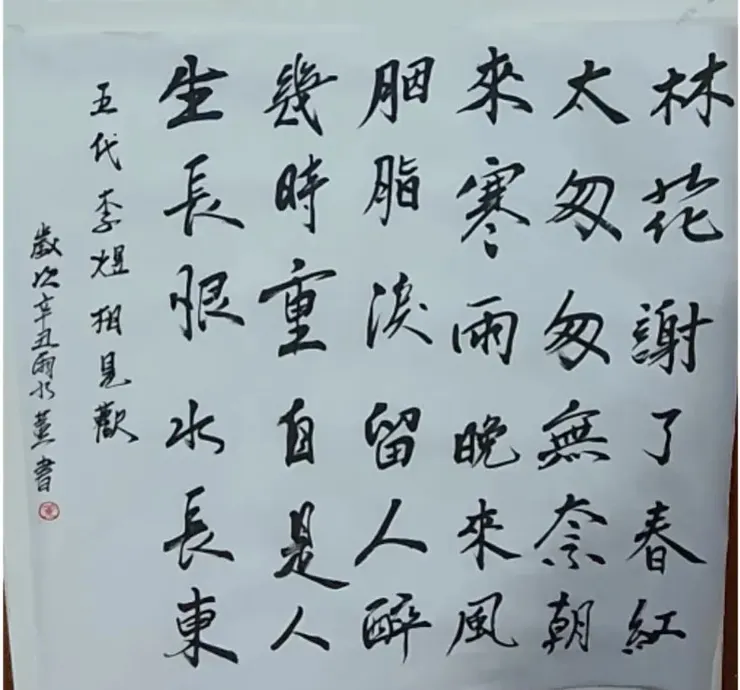 林花謝了春紅
太匆匆無奈朝
來寒雨晚來風
胭脂淚留人醉
幾時重自是人
生長恨水長東
五代李煜相見歡
歲次辛丑雨水董書